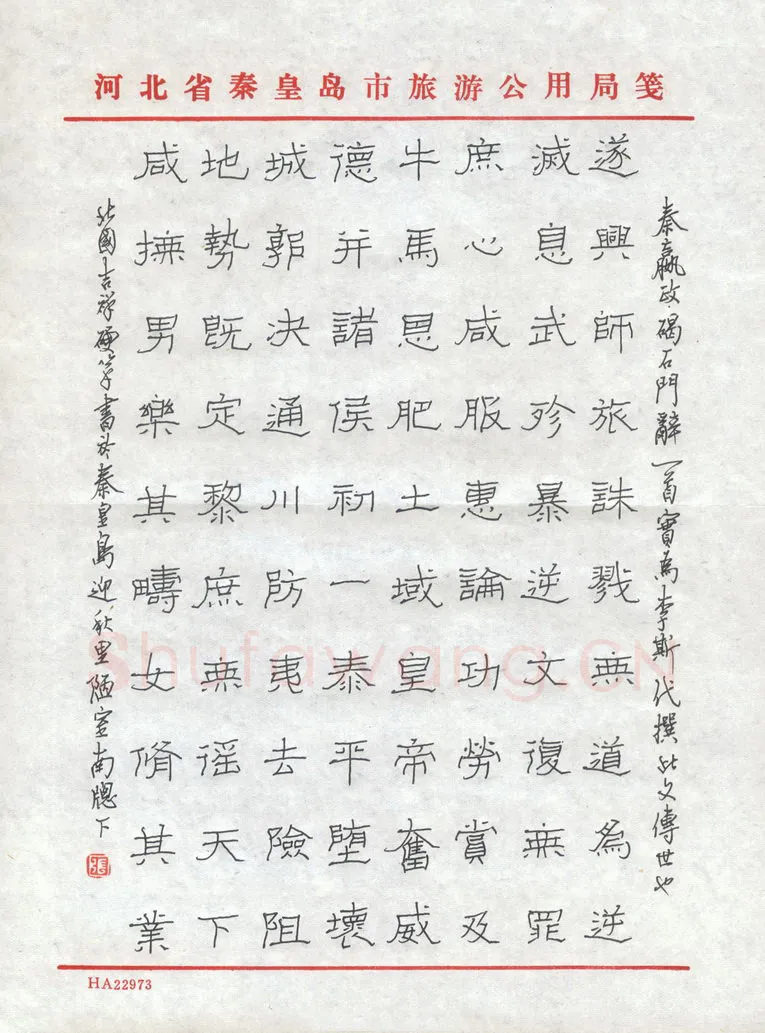 河北省秦皇岛市旅游公用局笺
秦嬴政碣石門辭一首實為李斯代撰此文傳世也
遂興師旅誅戮無道為逆
滅息武殄暴逆文復無罪
庶心咸服惠論功勞賞及
牛馬恩肥土域皇帝奮威
德并諸侯初一泰平堕壞
城郭决通川防夷去險阻
地勢既定黎庶無徭天下
咸撫男樂其疇女脩其業
北國吉祥硬筆書於秦皇島迎秋里陋室南牕下
張
HA22973
Shufawang.CN